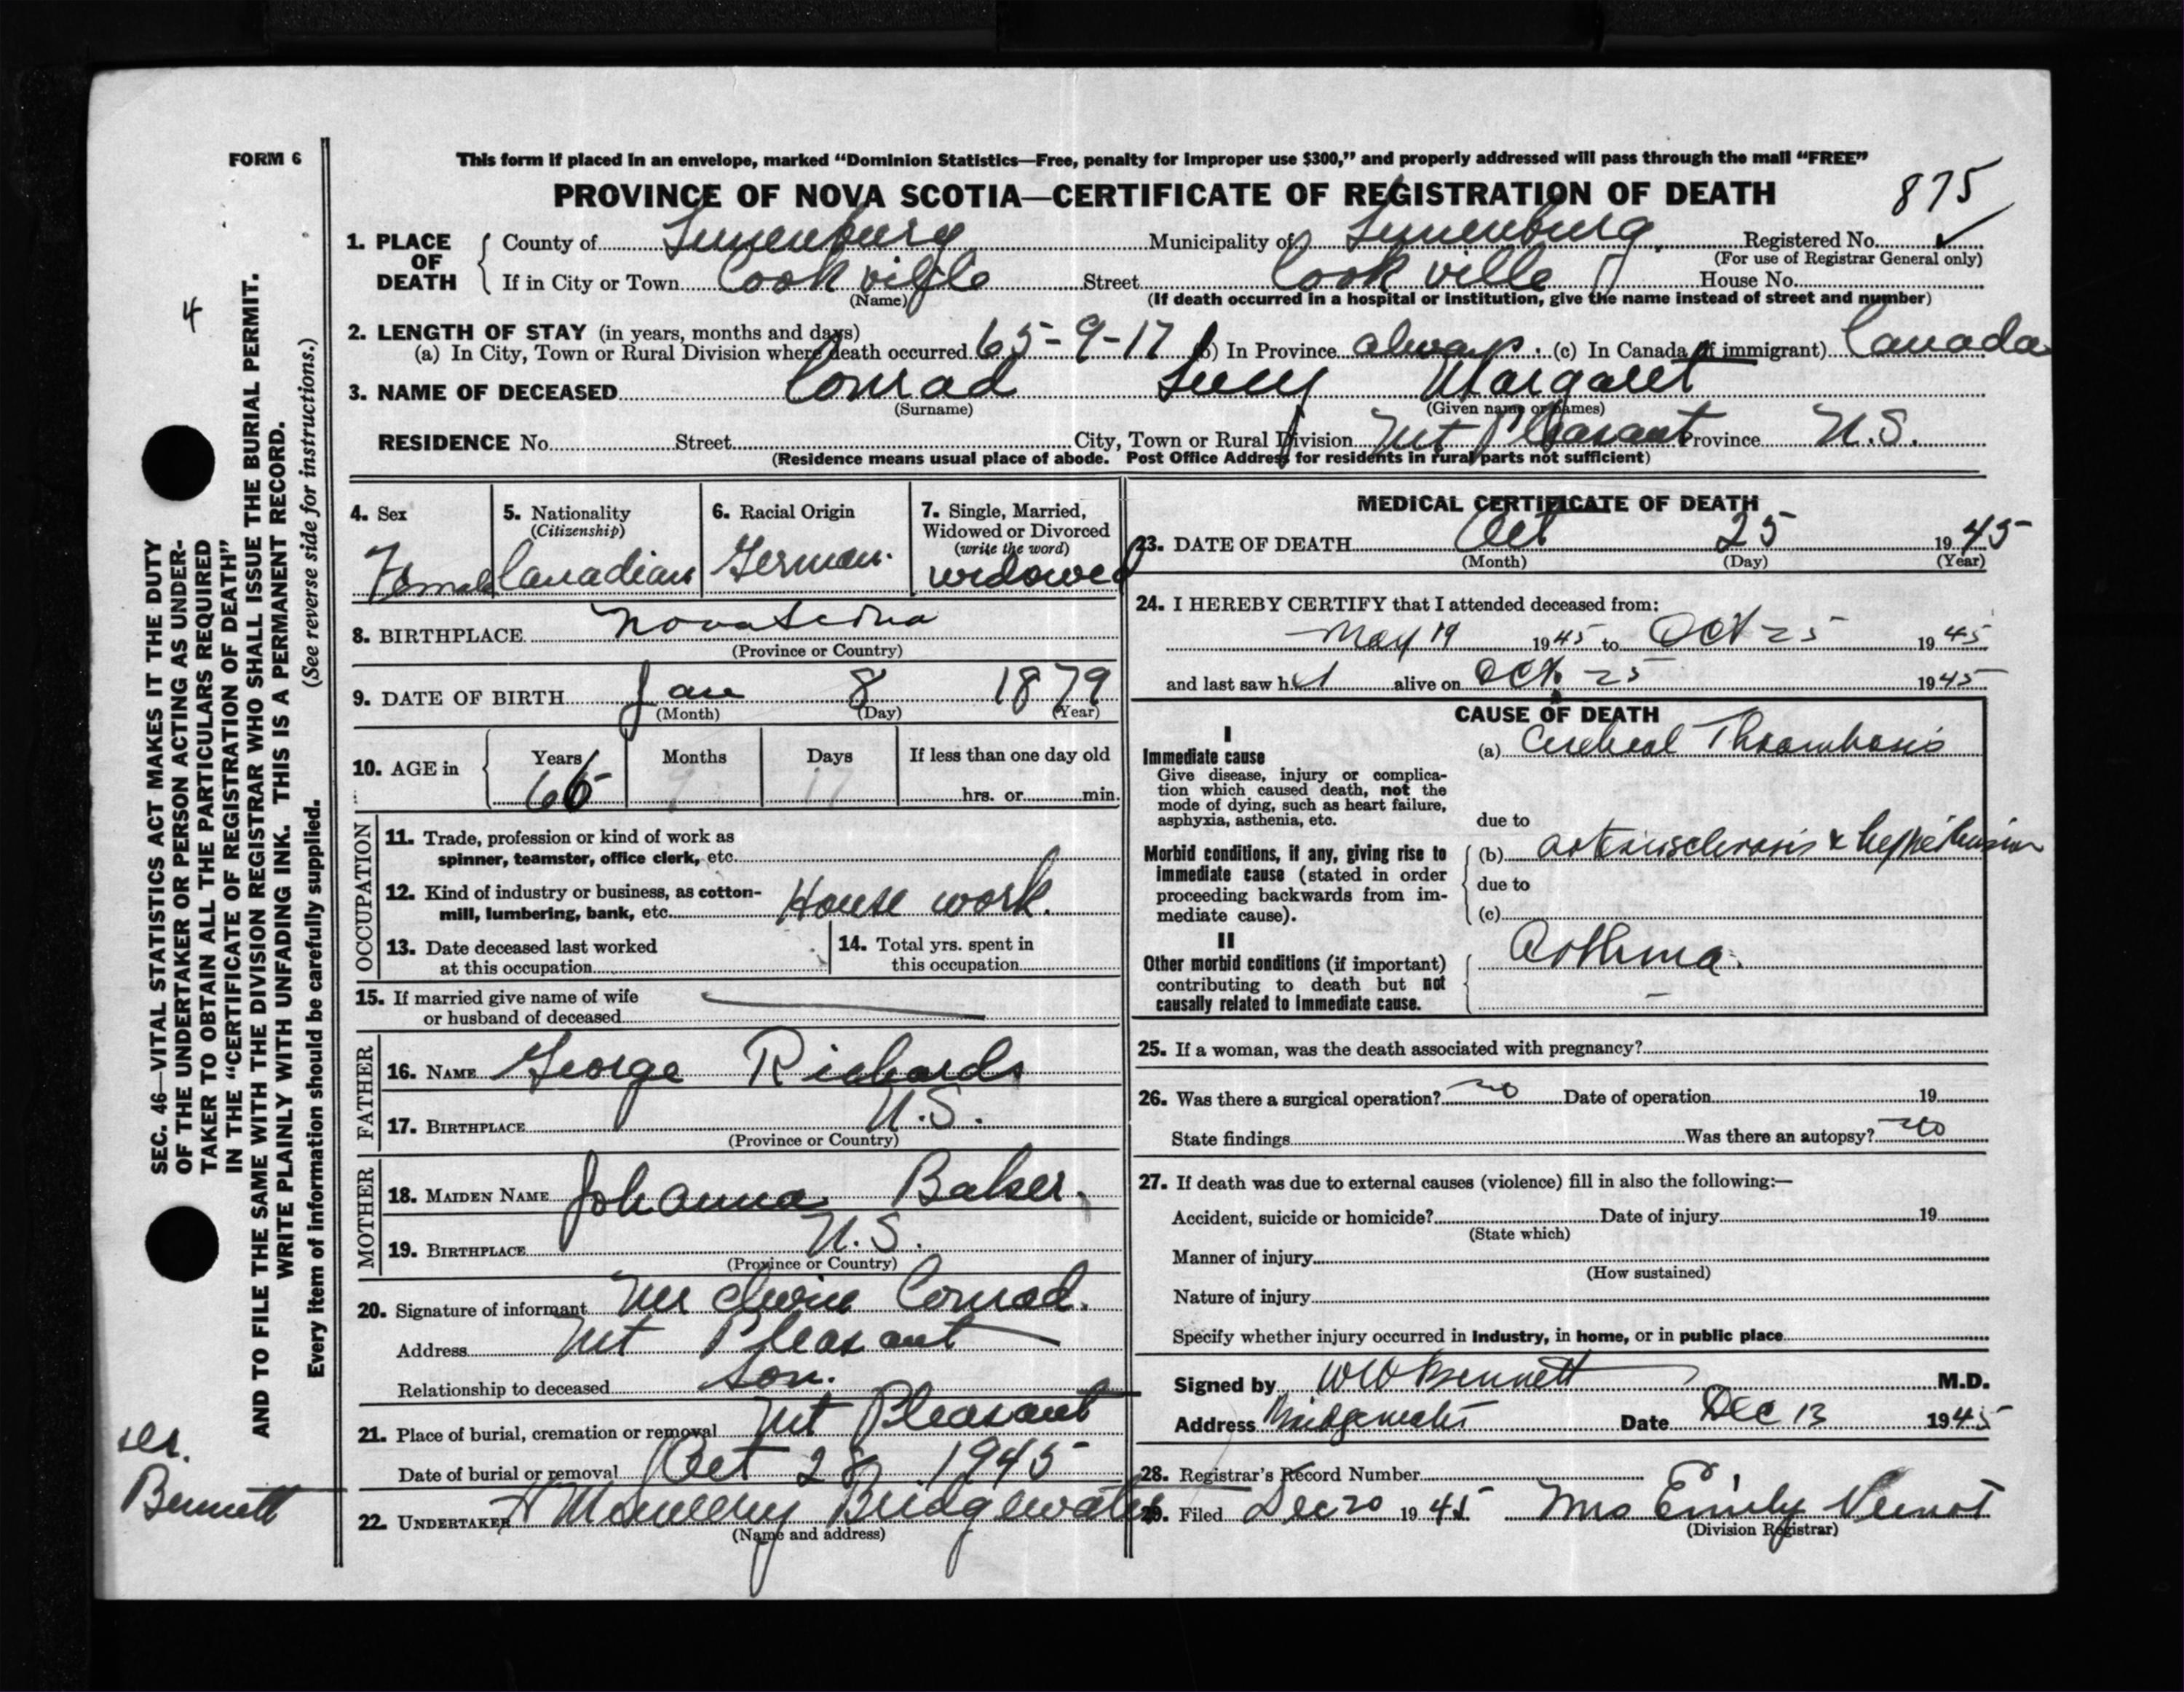 FORM 6
This form if placed in an envelope, marked “Dominion Statistics—Free, penalty for improper use $300,” and properly addressed will pass through the mail “FREE”
PROVINCE OF NOVA SCOTIA—CERTIFICATE OF REGISTRATION OF DEATH
875
1. PLACE OF DEATH
County of Lunenburg Municipality of Lunenburg. Registered No.
(For use of Registrar General only)
If in City or Town Cookville Street Cookville House No.
(Name) (If death occurred in a hospital or institution, give the name instead of street and number)
2. LENGTH OF STAY (in years, months and days)
(a) In City, Town or Rural Division where death occurred 65-9-17 (b) In Province always. (c) In Canada (if immigrant) Canada
3. NAME OF DECEASED Conrad Lucy Margaret
(Surname) (Given name or names)
RESIDENCE No. Street City, Town or Rural Division Mt Pleasant Province N.S.
(Residence means usual place of abode. Post Office Address for residents in rural parts not sufficient)
4. Sex
Female
5. Nationality
(Citizenship)
Canadian
6. Racial Origin
German.
7. Single, Married,
Widowed or Divorced
(write the word)
widowed
8. BIRTHPLACE Nova Scotia
(Province or Country)
9. DATE OF BIRTH Jan 8 1879
(Month) (Day) (Year)
10. AGE in Years Months Days If less than one day old
66 9 17 hrs. or min.
OCCUPATION
11. Trade, profession or kind of work as
spinner, teamster, office clerk, etc.
12. Kind of industry or business, as cotton-
mill, lumbering, bank, etc. House work.
13. Date deceased last worked
at this occupation
14. Total yrs. spent in
this occupation
15. If married give name of wife
or husband of deceased
FATHER
16. NAME George Richards
17. BIRTHPLACE N.S.
(Province or Country)
MOTHER
18. MAIDEN NAME Johanna Baker.
19. BIRTHPLACE N.S.
(Province or Country)
20. Signature of informant Conrad.
Address Mt Pleasant
Relationship to deceased Son.
21. Place of burial, cremation or removal Mt Pleasant
Date of burial or removal Oct 28 1945
22. UNDERTAKER Bridgewater
(Name and address)
MEDICAL CERTIFICATE OF DEATH
23. DATE OF DEATH Oct 25 1945
(Month) (Day) (Year)
24. I HEREBY CERTIFY that I attended deceased from:
May 19 1945 to Oct 25 1945
and last saw h alive on Oct. 25 1945
CAUSE OF DEATH
I
Immediate cause
Give disease, injury or complica-
tion which caused death, not the
mode of dying, such as heart failure,
asphyxia, asthenia, etc.
(a) Cerebral Thrombosis
due to
Morbid conditions, if any, giving rise to
immediate cause (stated in order
proceeding backwards from im-
mediate cause).
(b) arteriosclerosis & hypertension
due to
(c)
II
Other morbid conditions (if important)
contributing to death but not
causally related to immediate cause.
Asthma.
25. If a woman, was the death associated with pregnancy?
26. Was there a surgical operation? no Date of operation 19
State findings Was there an autopsy? no
27. If death was due to external causes (violence) fill in also the following:—
Accident, suicide or homicide? Date of injury 19
(State which)
Manner of injury
(How sustained)
Nature of injury
Specify whether injury occurred in industry, in home, or in public place
Signed by W W Bennett M.D.
Address Bridgewater Date Dec 13 1945
28. Registrar's Record Number
29. Filed Dec 20 1945 Mrs Emily Veinot
(Division Registrar)
4
SEC. 46—VITAL STATISTICS ACT MAKES IT THE DUTY
OF THE UNDERTAKER OR PERSON ACTING AS UNDER-
TAKER TO OBTAIN ALL THE PARTICULARS REQUIRED
IN THE “CERTIFICATE OF REGISTRATION OF DEATH”
AND TO FILE THE SAME WITH THE DIVISION REGISTRAR WHO SHALL ISSUE THE BURIAL PERMIT.
WRITE PLAINLY WITH UNFADING INK. THIS IS A PERMANENT RECORD.
Every item of information should be carefully supplied. (See reverse side for instructions.)
Bennett